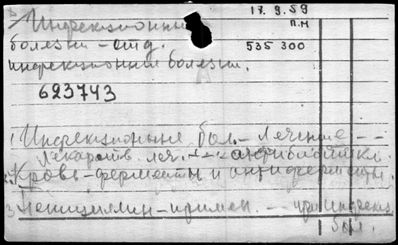 Инфекционные 17.9.59
болезни - отд. п.н
535 300
инфекционные болезни.
623743
1 Инфекционные бол. - лечение - -
лекарств. леч. - - - антибиотики.
2 Кровь - ферменты и антиферменты.
3 Пенициллин - примен. - - при инфекц.
бол.